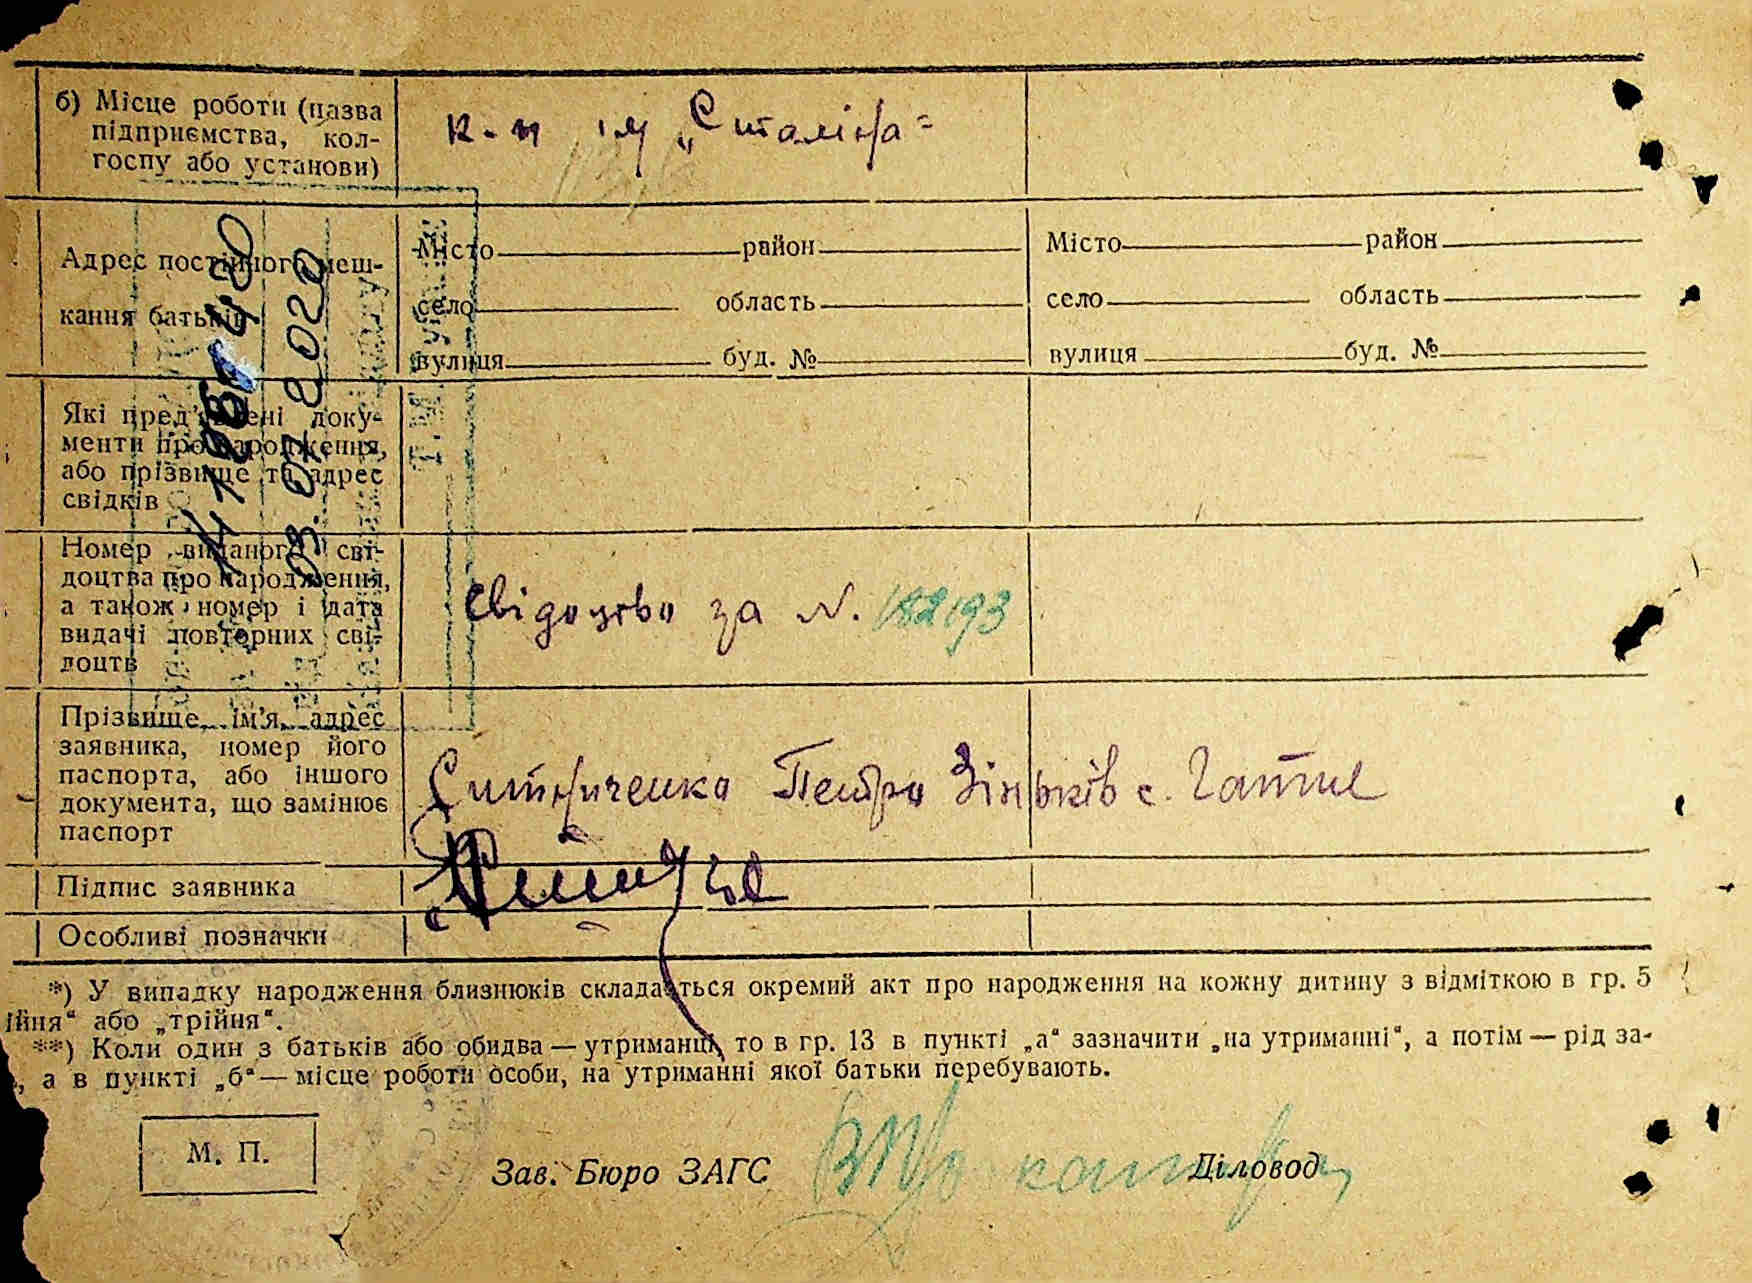 б) Місце роботи (назва
підприємства, кол-
госпу або установи)
к-п ім „Сталіна"
Адрес постійного меш-
кання батьків
Місто район
село область
вулиця буд. №
Місто район
село область
вулиця буд. №
03.07.2020
Які пред'явлені доку-
менти про народження,
або прізвище та адрес
свідків
Номер виданого сві-
доцтва про народження,
а також номер і дата
видачі повторних сві-
доцтв
Свідоцтво за N. 182193
Прізвище, ім'я, адрес
заявника, номер його
паспорта, або іншого
документа, що замінює
паспорт
Ситниченко Петро Зіньків с.
Підпис заявника
Особливі позначки
*) У випадку народження близнюків складається окремий акт про народження на кожну дитину з відміткою в гр. 5
ійня" або „трійня".
**) Коли один з батьків або обидва — утриманці, то в гр. 13 в пункті „а" зазначити „на утриманні", а потім — рід за-
, а в пункті „б" — місце роботи особи, на утриманні якої батьки перебувають.
М. П.
Зав. Бюро ЗАГС
Діловод